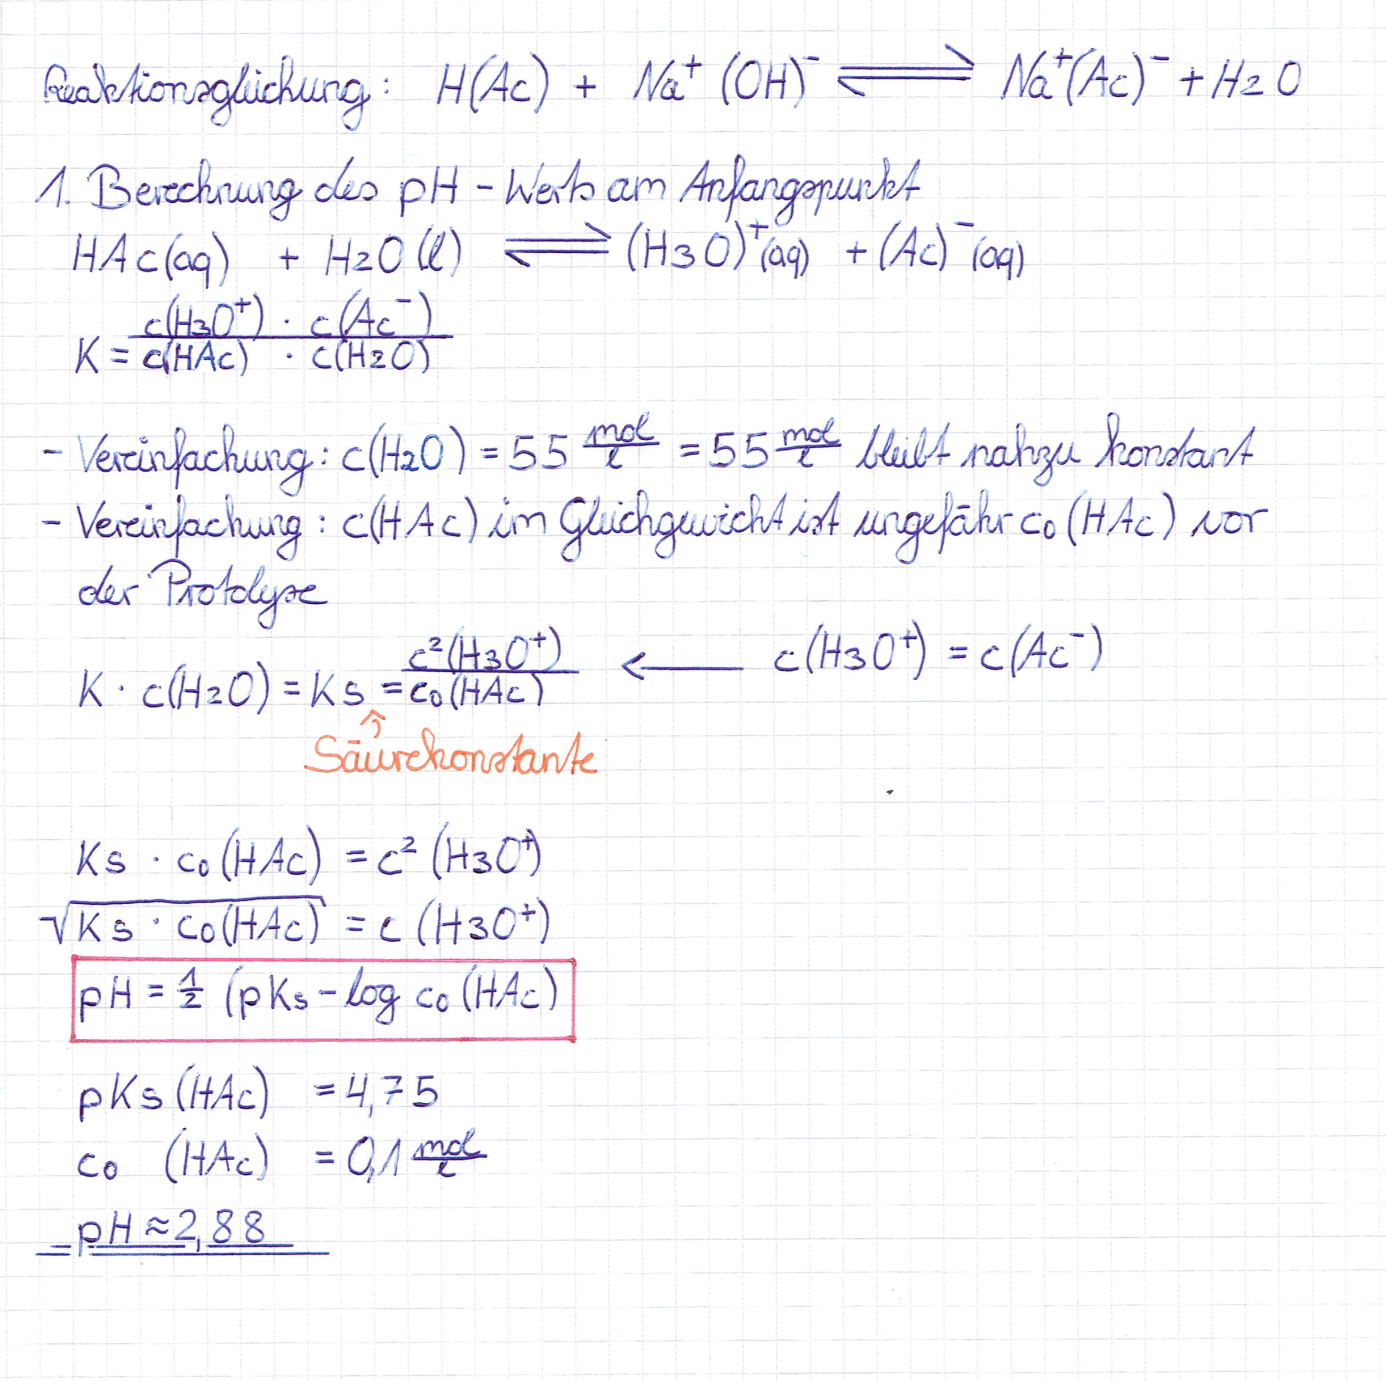 Reaktionsgleichung: H(Ac) + Na⁺ (OH)⁻ ⇌ Na⁺(Ac)⁻ + H2O
1. Berechnung des pH-Werts am Anfangspunkt
HAc(aq) + H2O(l) ⇌ (H3O)⁺(aq) + (Ac)⁻(aq)
c(H3O⁺) · c(Ac⁻)
K = c(HAc) · c(H2O)
- Vereinfachung: c(H2O) = 55 mol/l = 55 mol/l bleibt nahzu konstant
- Vereinfachung: c(HAc) im Gleichgewicht ist ungefähr c0(HAc) vor
der Protolyse
c²(H3O⁺) ← c(H3O⁺) = c(Ac⁻)
K · c(H2O) = Ks = c0(HAc)
Säurekonstante
Ks · c0(HAc) = c²(H3O⁺)
√Ks · c0(HAc) = c(H3O⁺)
pH = ½ (pKs - log c0(HAc)
pKs(HAc) = 4,75
c0 (HAc) = 0,1 mol/l
pH ≈ 2,88